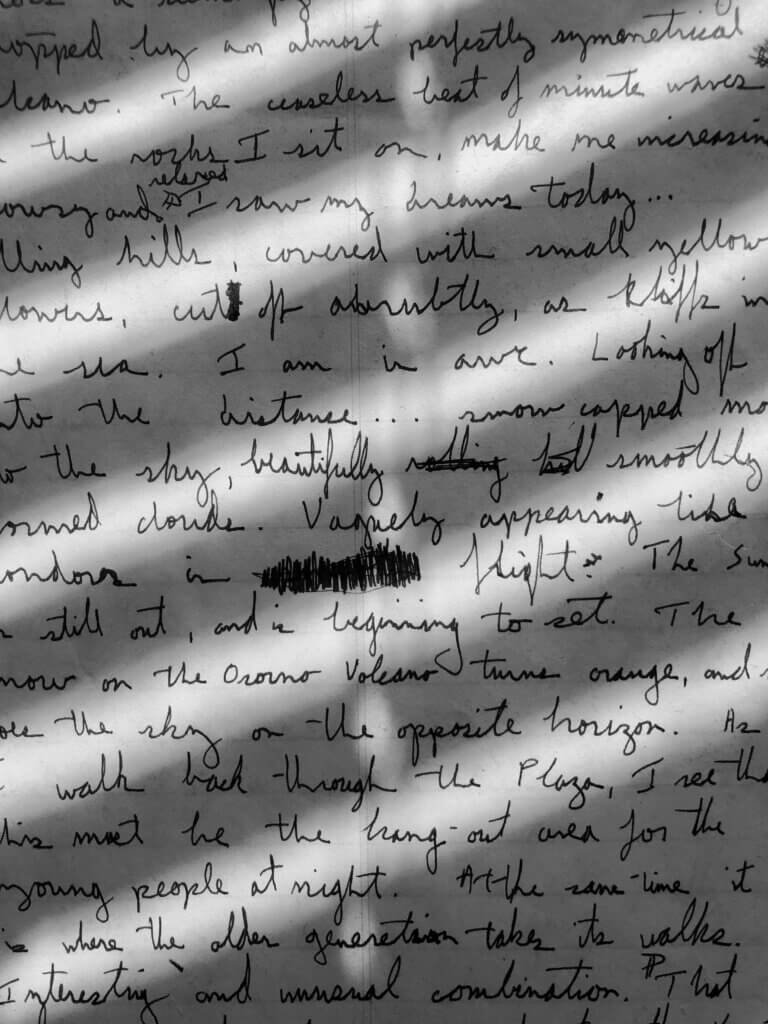 opped by an almost perfectly symmetrical
lcano. The ceaseless beat of minute waves
the rocks I sit on, make me increasin
relaxed
owsy and I saw my dreams today...
lling hills, covered with small yellow
lowers, cut off abrubtly, as kliffs in
he sea. I am in awe. Looking off
nto the distance... snow capped mo
to the sky, beautifully smoothly
ormed clouds. Vaguely appearing like
ondors in flight. The Sun
is still out, and is beginning to set. The
now on the Osorno Volcano turns orange, and s
oes the sky on the opposite horizon. As
I walk back through the Plaza, I see tha
his must be the hang-out area for the
young people at night. At the same-time it
is where the older generation takes its walks.
Interesting and unusual combination. That